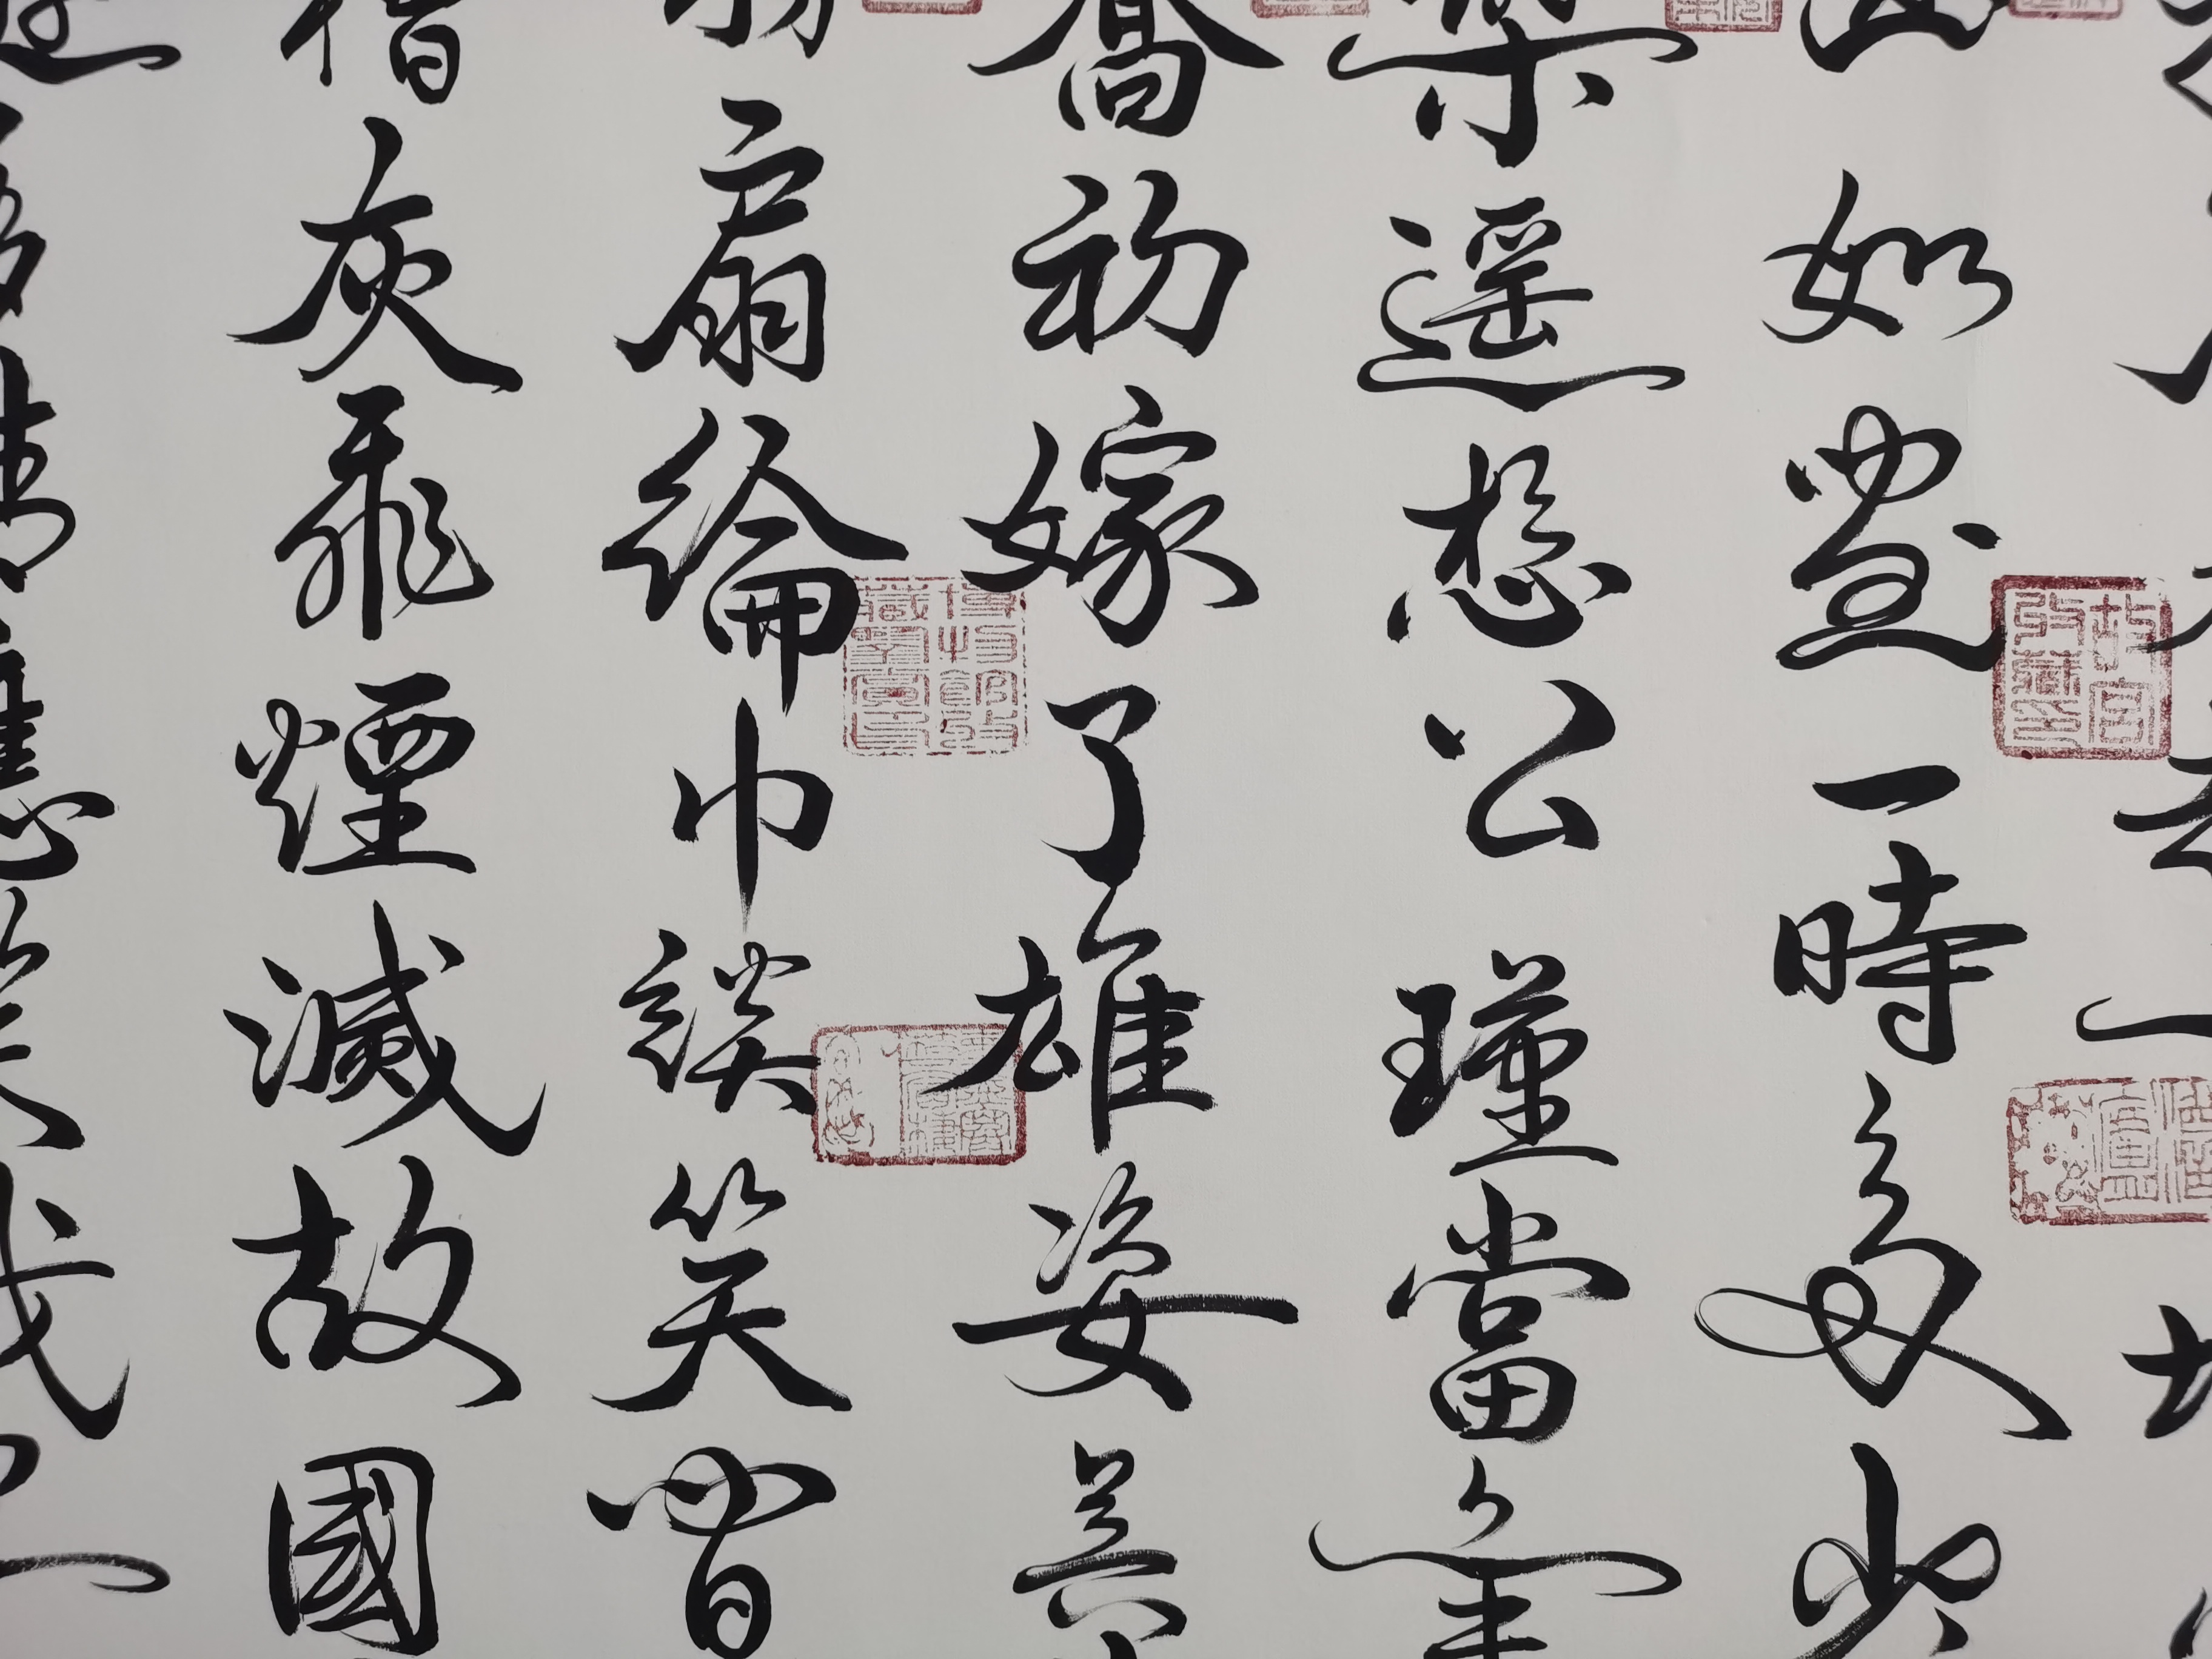 如畫一時多少
傑遥想公瑾當年
喬初嫁了雄姿英
扇綸巾談笑間
灰飛煙滅故國
情應笑我